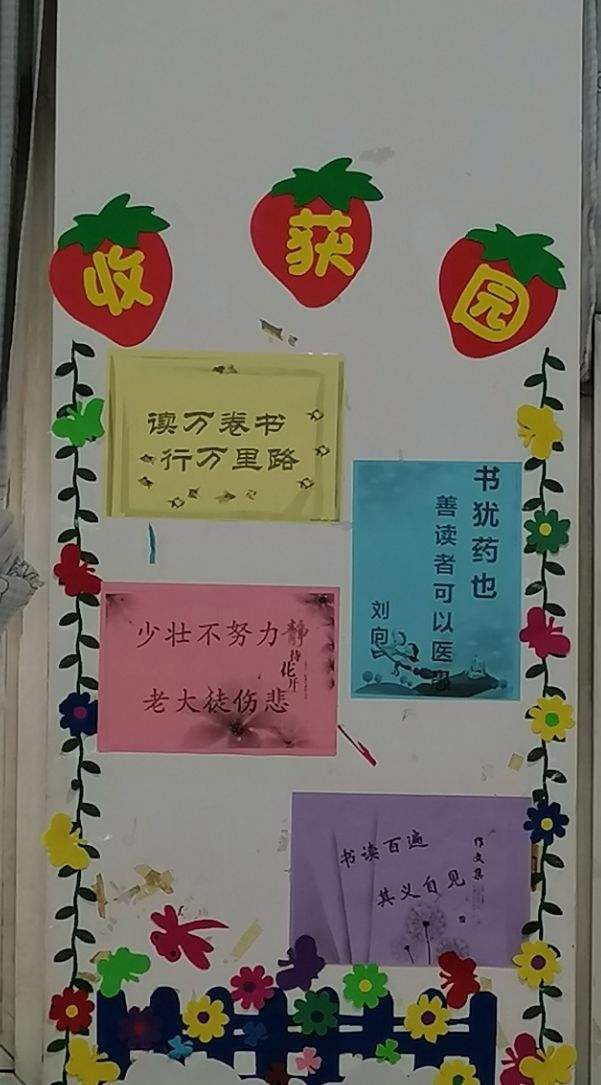 收获园
读万卷书
行万里路
书犹药也
善读者可以医
刘向
少壮不努力
老大徒伤悲
静待花开
书读百遍
其义自见
作文集